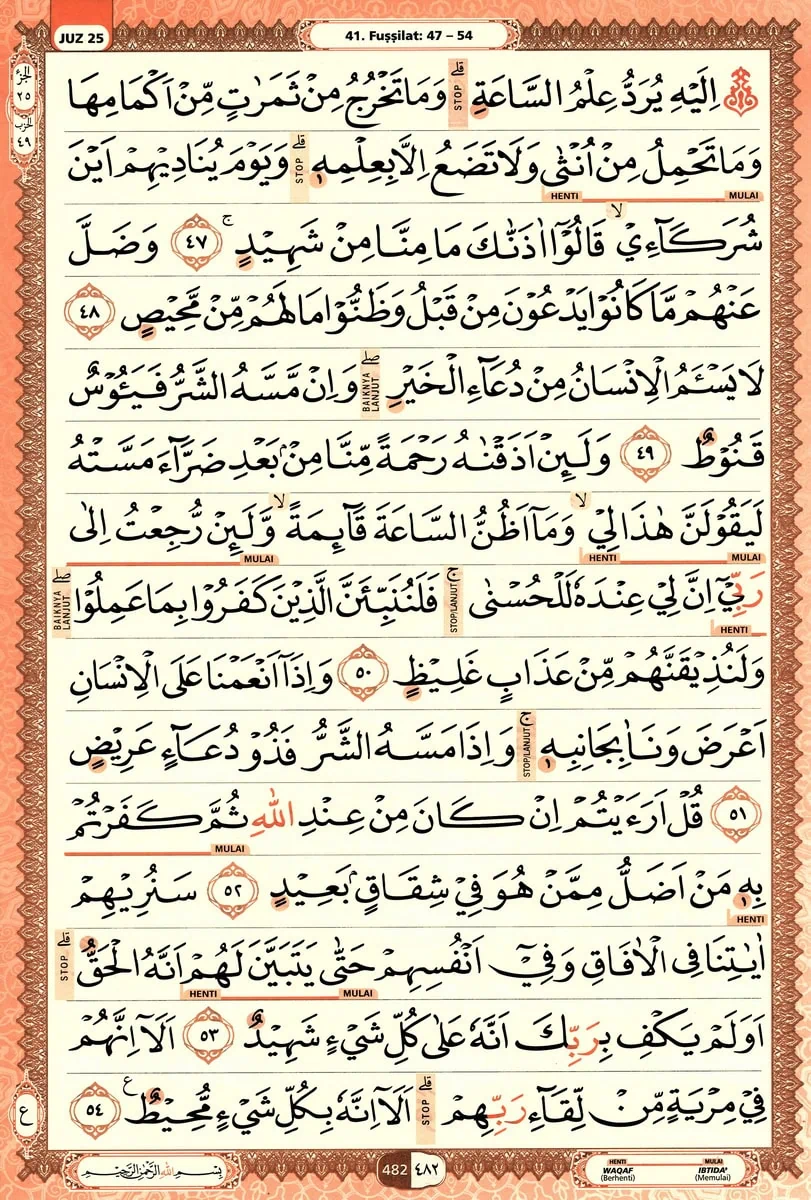 JUZ 25
41. Fuṣṣilat: 47 – 54
الجزء
٢٥
الحزب
٤٩
اِلَيْهِ يُرَدُّ عِلْمُ السَّاعَةِ ۗ وَمَا تَخْرُجُ مِنْ ثَمَرٰتٍ مِّنْ اَكْمَامِهَا
STOP
وَمَا تَحْمِلُ مِنْ اُنْثٰى وَلَا تَضَعُ اِلَّا بِعِلْمِهٖ ۗ وَيَوْمَ يُنَادِيْهِمْ اَيْنَ
STOP
HENTI MULAI
شُرَكَاۤءِيْۙ قَالُوْٓا اٰذَنّٰكَ مَا مِنَّا مِنْ شَهِيْدٍ ۚ ٤٧ وَضَلَّ
عَنْهُمْ مَّا كَانُوْا يَدْعُوْنَ مِنْ قَبْلُ وَظَنُّوْا مَا لَهُمْ مِّنْ مَّحِيْصٍ ٤٨
لَا يَسْـَٔمُ الْاِنْسَانُ مِنْ دُعَاۤءِ الْخَيْرِۖ وَاِنْ مَّسَّهُ الشَّرُّ فَيَـُٔوْسٌ
BAIKNYA LANJUT
قَنُوْطٌ ٤٩ وَلَىِٕنْ اَذَقْنٰهُ رَحْمَةً مِّنَّا مِنْۢ بَعْدِ ضَرَّاۤءَ مَسَّتْهُ
لَيَقُوْلَنَّ هٰذَا لِيْۙ وَمَآ اَظُنُّ السَّاعَةَ قَاۤىِٕمَةًۙ وَّلَىِٕنْ رُّجِعْتُ اِلٰى
MULAI HENTI MULAI
رَبِّيْٓ اِنَّ لِيْ عِنْدَهٗ لَلْحُسْنٰىۚ فَلَنُنَبِّئَنَّ الَّذِيْنَ كَفَرُوْا بِمَا عَمِلُوْاۖ
STOP/LANJUT
BAIKNYA LANJUT
HENTI
وَلَنُذِيْقَنَّهُمْ مِّنْ عَذَابٍ غَلِيْظٍ ٥٠ وَاِذَآ اَنْعَمْنَا عَلَى الْاِنْسَانِ
اَعْرَضَ وَنَاٰ بِجَانِبِهٖۚ وَاِذَا مَسَّهُ الشَّرُّ فَذُوْ دُعَاۤءٍ عَرِيْضٍ
STOP/LANJUT
٥١ قُلْ اَرَءَيْتُمْ اِنْ كَانَ مِنْ عِنْدِ اللّٰهِ ثُمَّ كَفَرْتُمْ
MULAI
بِهٖ مَنْ اَضَلُّ مِمَّنْ هُوَ فِيْ شِقَاقٍۢ بَعِيْدٍ ٥٢ سَنُرِيْهِمْ
HENTI
اٰيٰتِنَا فِى الْاٰفَاقِ وَفِيْٓ اَنْفُسِهِمْ حَتّٰى يَتَبَيَّنَ لَهُمْ اَنَّهُ الْحَقُّۗ
STOP
HENTI MULAI
اَوَلَمْ يَكْفِ بِرَبِّكَ اَنَّهٗ عَلٰى كُلِّ شَيْءٍ شَهِيْدٌ ٥٣ اَلَآ اِنَّهُمْ
فِيْ مِرْيَةٍ مِّنْ لِّقَاۤءِ رَبِّهِمْۗ اَلَآ اِنَّهٗ بِكُلِّ شَيْءٍ مُّحِيْطٌ ࣖ ٥٤
STOP
ع
بِسْمِ اللّٰهِ الرَّحْمٰنِ الرَّحِيْمِ
482 ٤٨٢
HENTI MULAI
WAQAF IBTIDA'
(Berhenti) (Memulai)